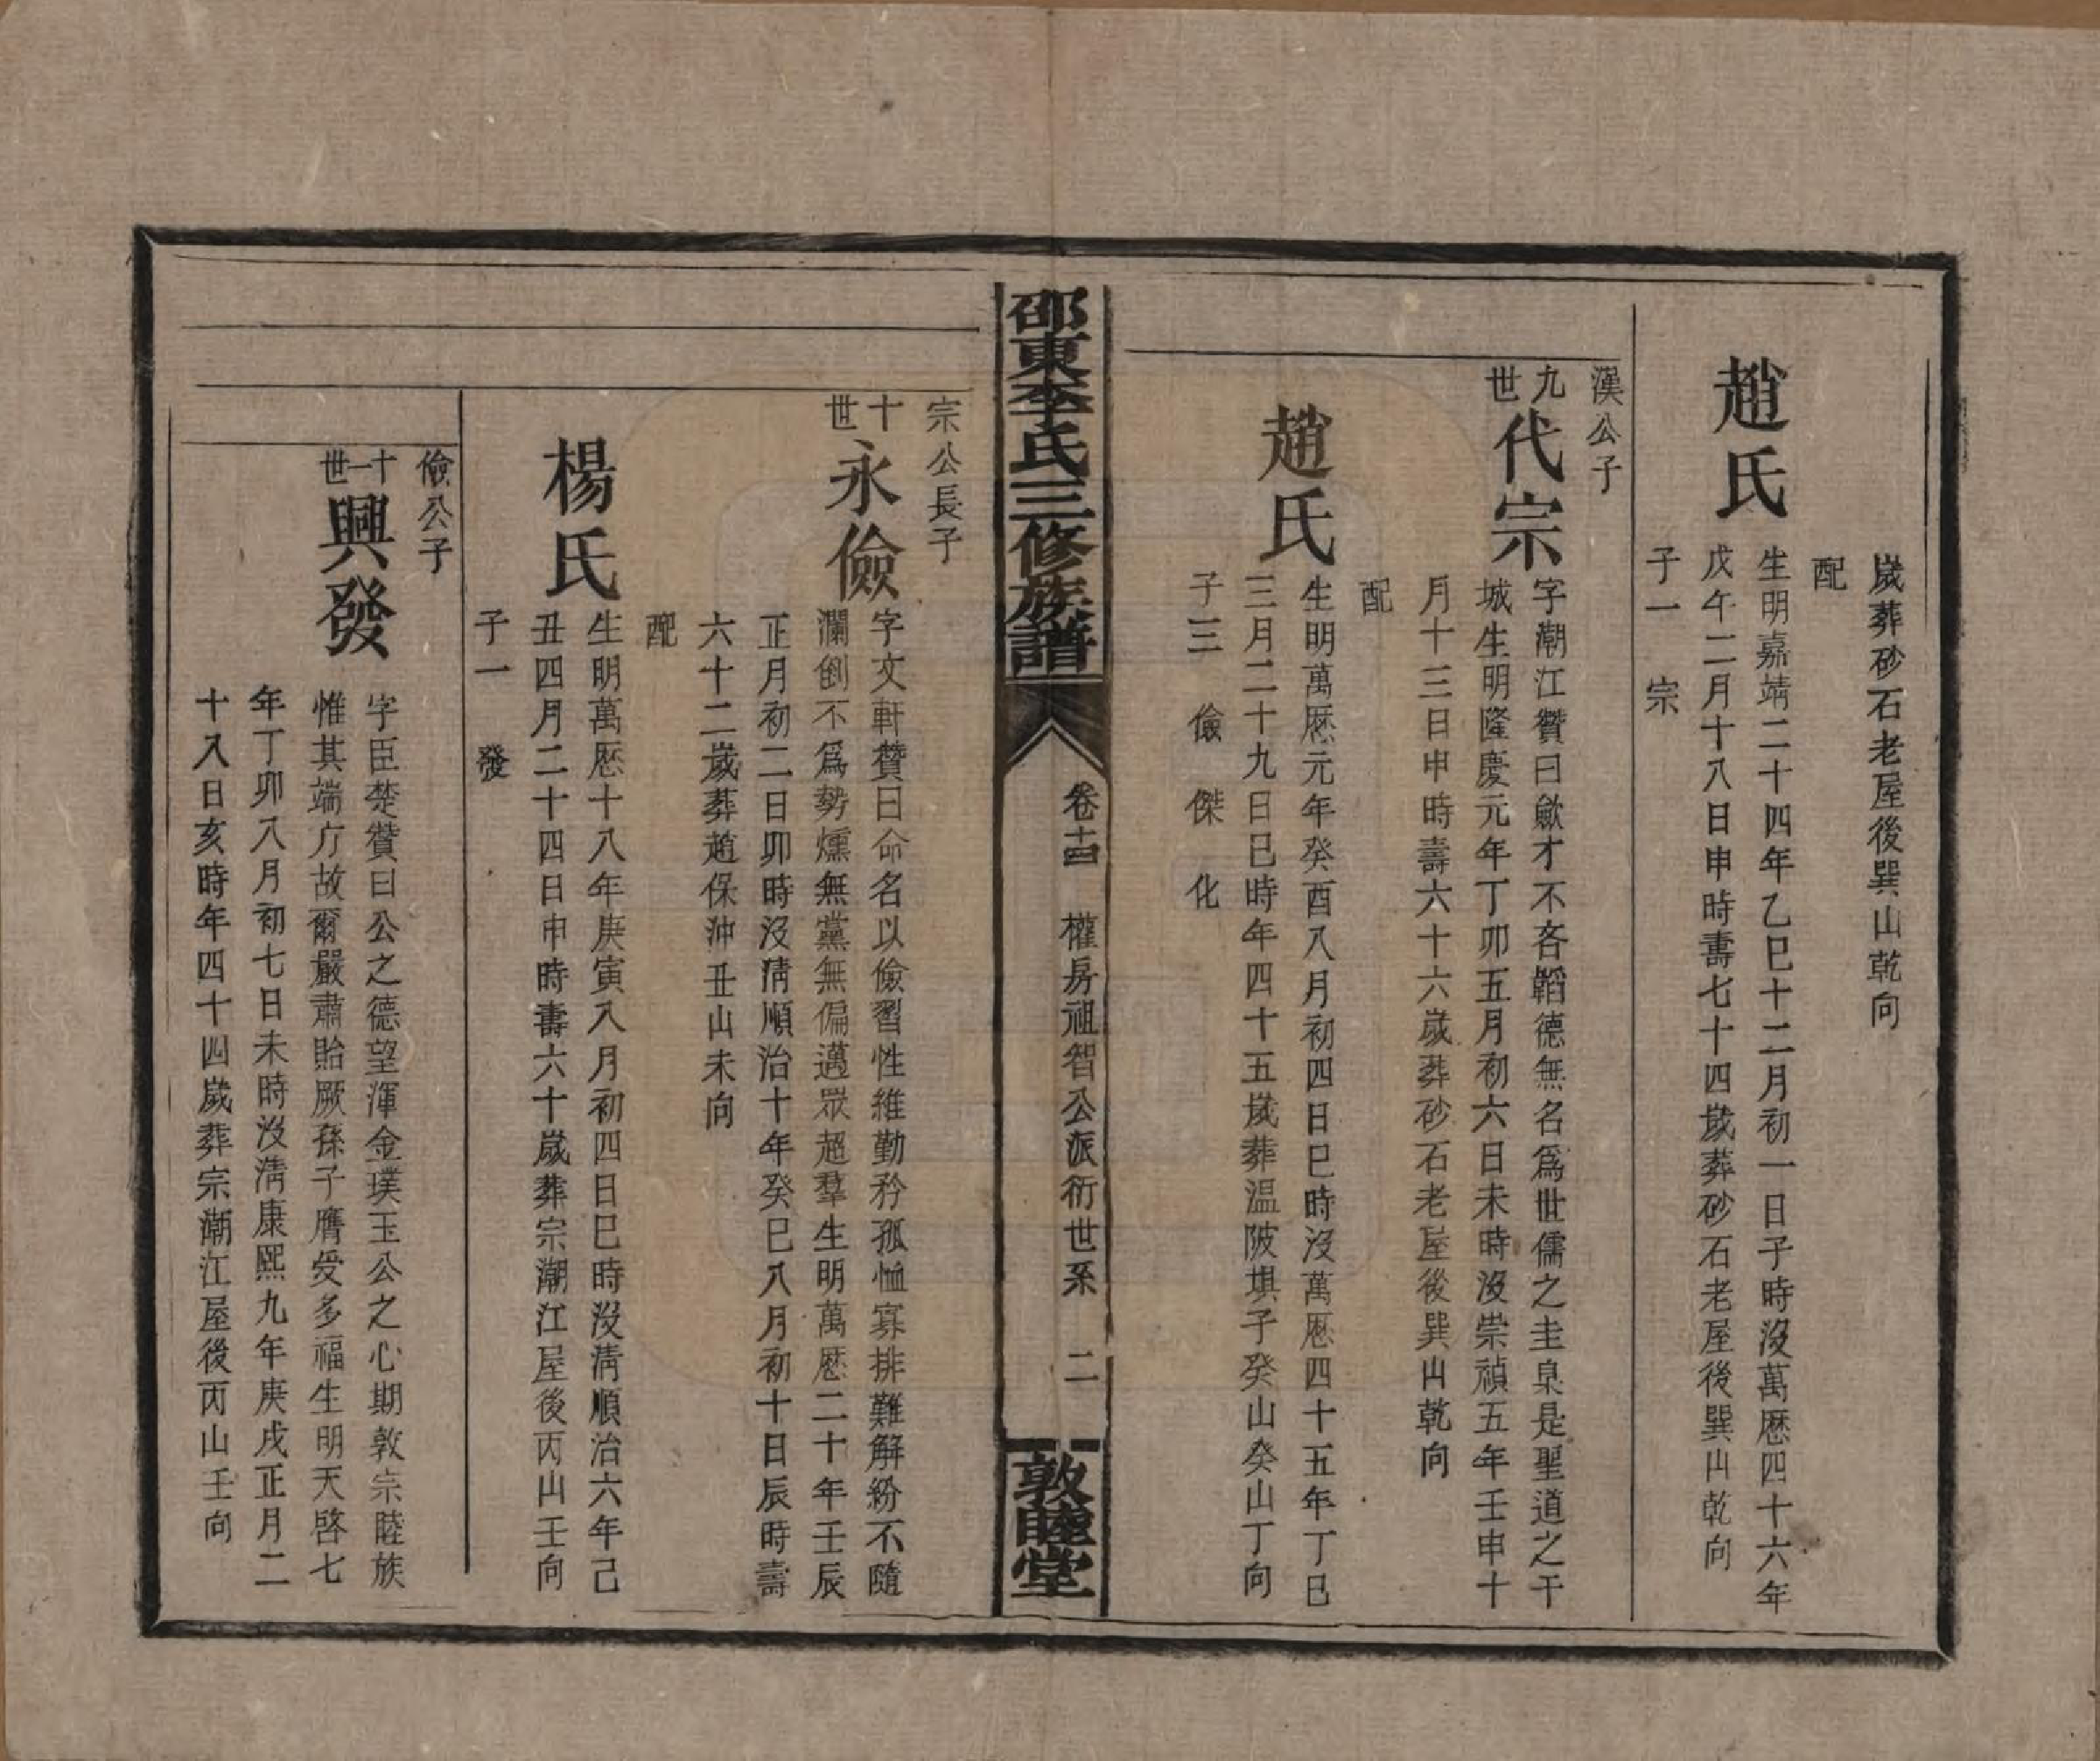 歲葬砂石老屋後巽山乾向
配
趙氏
生明嘉靖二十四年乙巳十二月初一日子時沒萬厯四十六年
戊午二月十八日申時壽七十四歲葬砂石老屋後巽山乾向
子一 宗
漢公子
九世
代宗
字潮江贊曰斂才不吝韜德無名爲世儒之圭臬是聖道之干
城生明隆慶元年丁卯五月初六日未時沒崇禎五年壬申十
月十三日申時壽六十六歲葬砂石老屋後巽山乾向
配
趙氏
生明萬厯元年癸酉八月初四日巳時沒萬厯四十五年丁巳
三月二十九日巳時年四十五歲葬溫陂塤子癸山癸山丁向
子三 儉 傑 化
邵東李氏三修族譜
卷十四 權房祖智公派衍世系 二
敦睦堂
宗公長子
十世
永儉
字文軒贊曰命名以儉習性維勤矜孤恤寡排難解紛不隨
瀾倒不爲勢燻無黨無偏邁眾超羣生明萬厯二十年壬辰
正月初二日卯時沒清順治十年癸巳八月初十日辰時壽
六十二歲葬趙保沖丑山未向
配
楊氏
生明萬厯十八年庚寅八月初四日巳時沒清順治六年己
丑四月二十四日申時壽六十歲葬宗潮江屋後丙山壬向
子一 發
儉公子
十一世
興發
字臣楚贊曰公之德望渾金璞玉公之心期敦宗睦族
惟其端方故爾嚴肅貽厥孫子膺受多福生明天啓七
年丁卯八月初七日未時沒清康熙九年庚戌正月二
十八日亥時年四十四歲葬宗潮江屋後丙山壬向